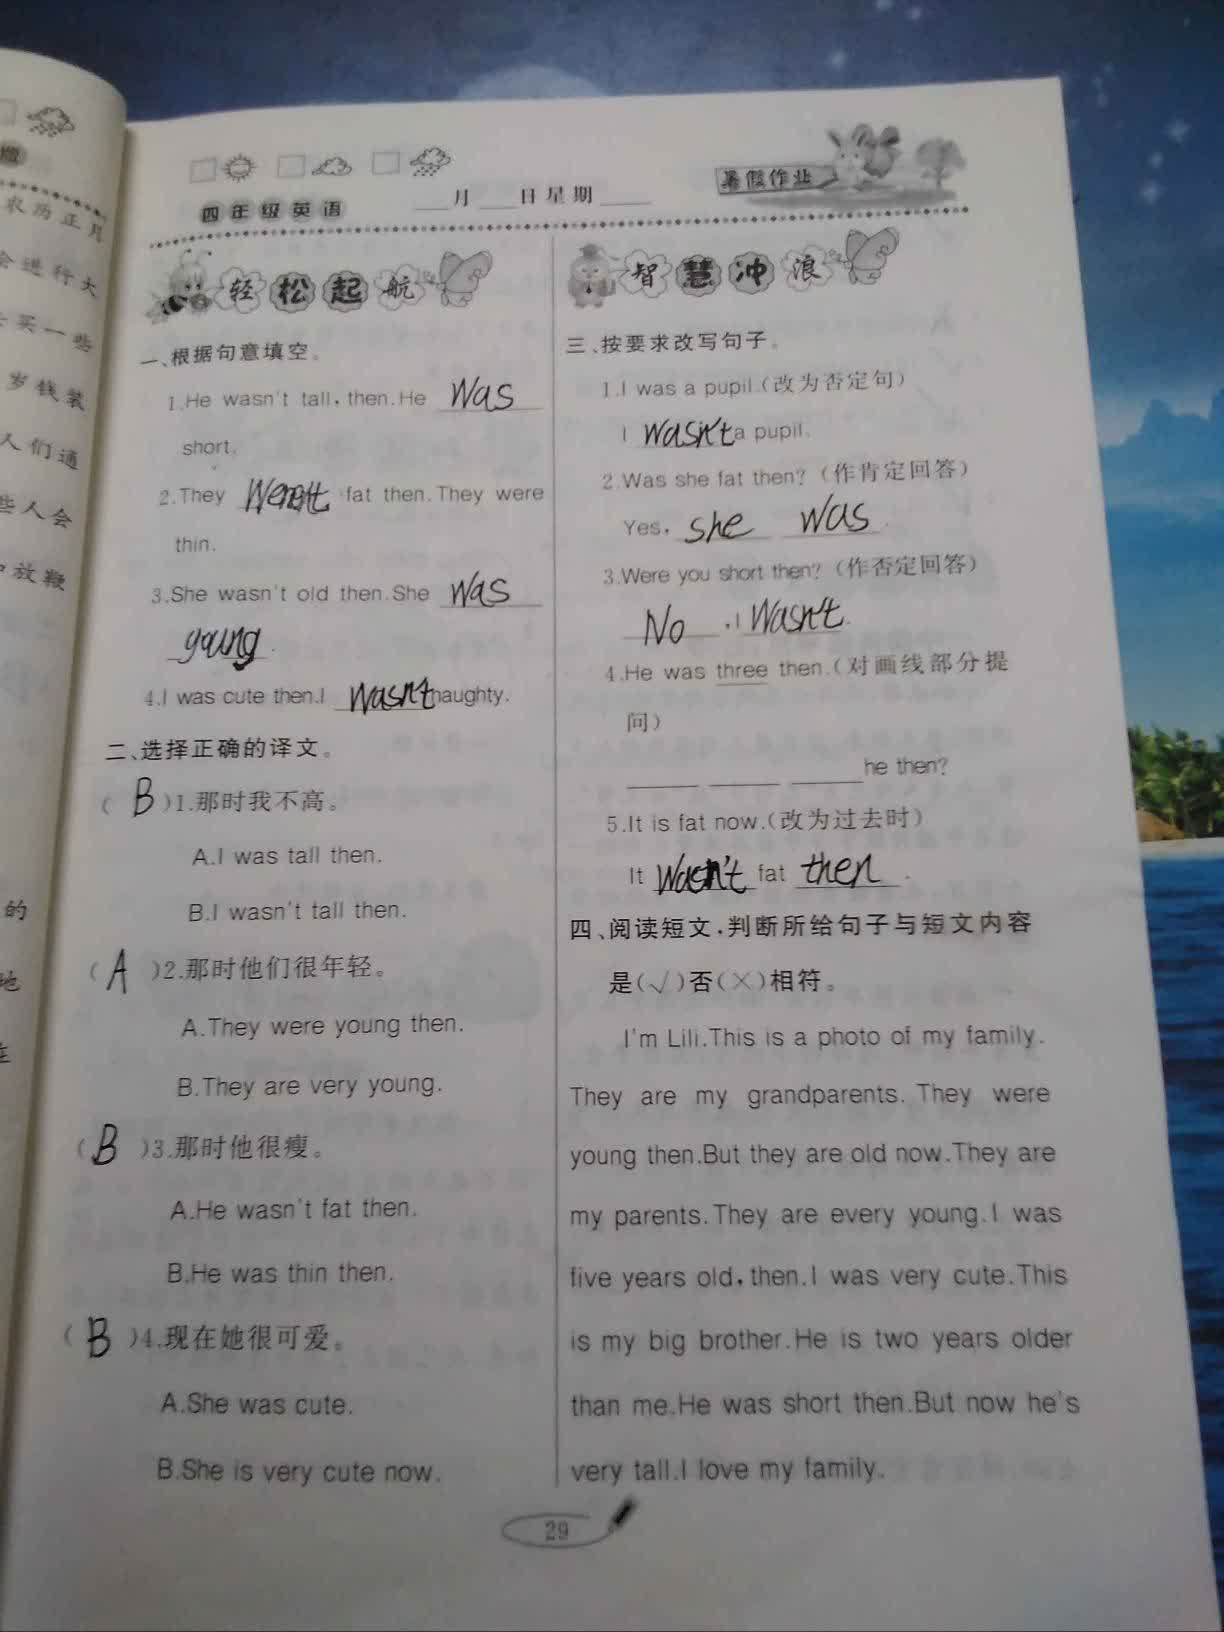 农历正月
会进行大
去买一些
岁钱装
人们通
些人会
放鞭
的
地
四年级英语
月 日 星期
暑假作业
轻松起航
一、根据句意填空。
1.He wasn't tall, then.He Was
short.
2.They Weren't fat then.They were
thin.
3.She wasn't old then.She Was
young.
4.I was cute then.I Wasn't naughty.
二、选择正确的译文。
( B )1.那时我不高。
A.I was tall then.
B.I wasn't tall then.
( A )2.那时他们很年轻。
A.They were young then.
B.They are very young.
( B )3.那时他很瘦。
A.He wasn't fat then.
B.He was thin then.
( B )4.现在她很可爱。
A.She was cute.
B.She is very cute now.
智慧冲浪
三、按要求改写句子。
1.I was a pupil.(改为否定句)
I wasn't a pupil.
2.Was she fat then? (作肯定回答)
Yes, she was.
3.Were you short then? (作否定回答)
No, I Wasn't.
4.He was three then.(对画线部分提
问)
he then?
5.It is fat now.(改为过去时)
It Wasn't fat then.
四、阅读短文,判断所给句子与短文内容
是(√)否(×)相符。
I'm Lili.This is a photo of my family.
They are my grandparents. They were
young then.But they are old now.They are
my parents.They are every young.I was
five years old, then.I was very cute.This
is my big brother.He is two years older
than me.He was short then.But now he's
very tall.I love my family.
29